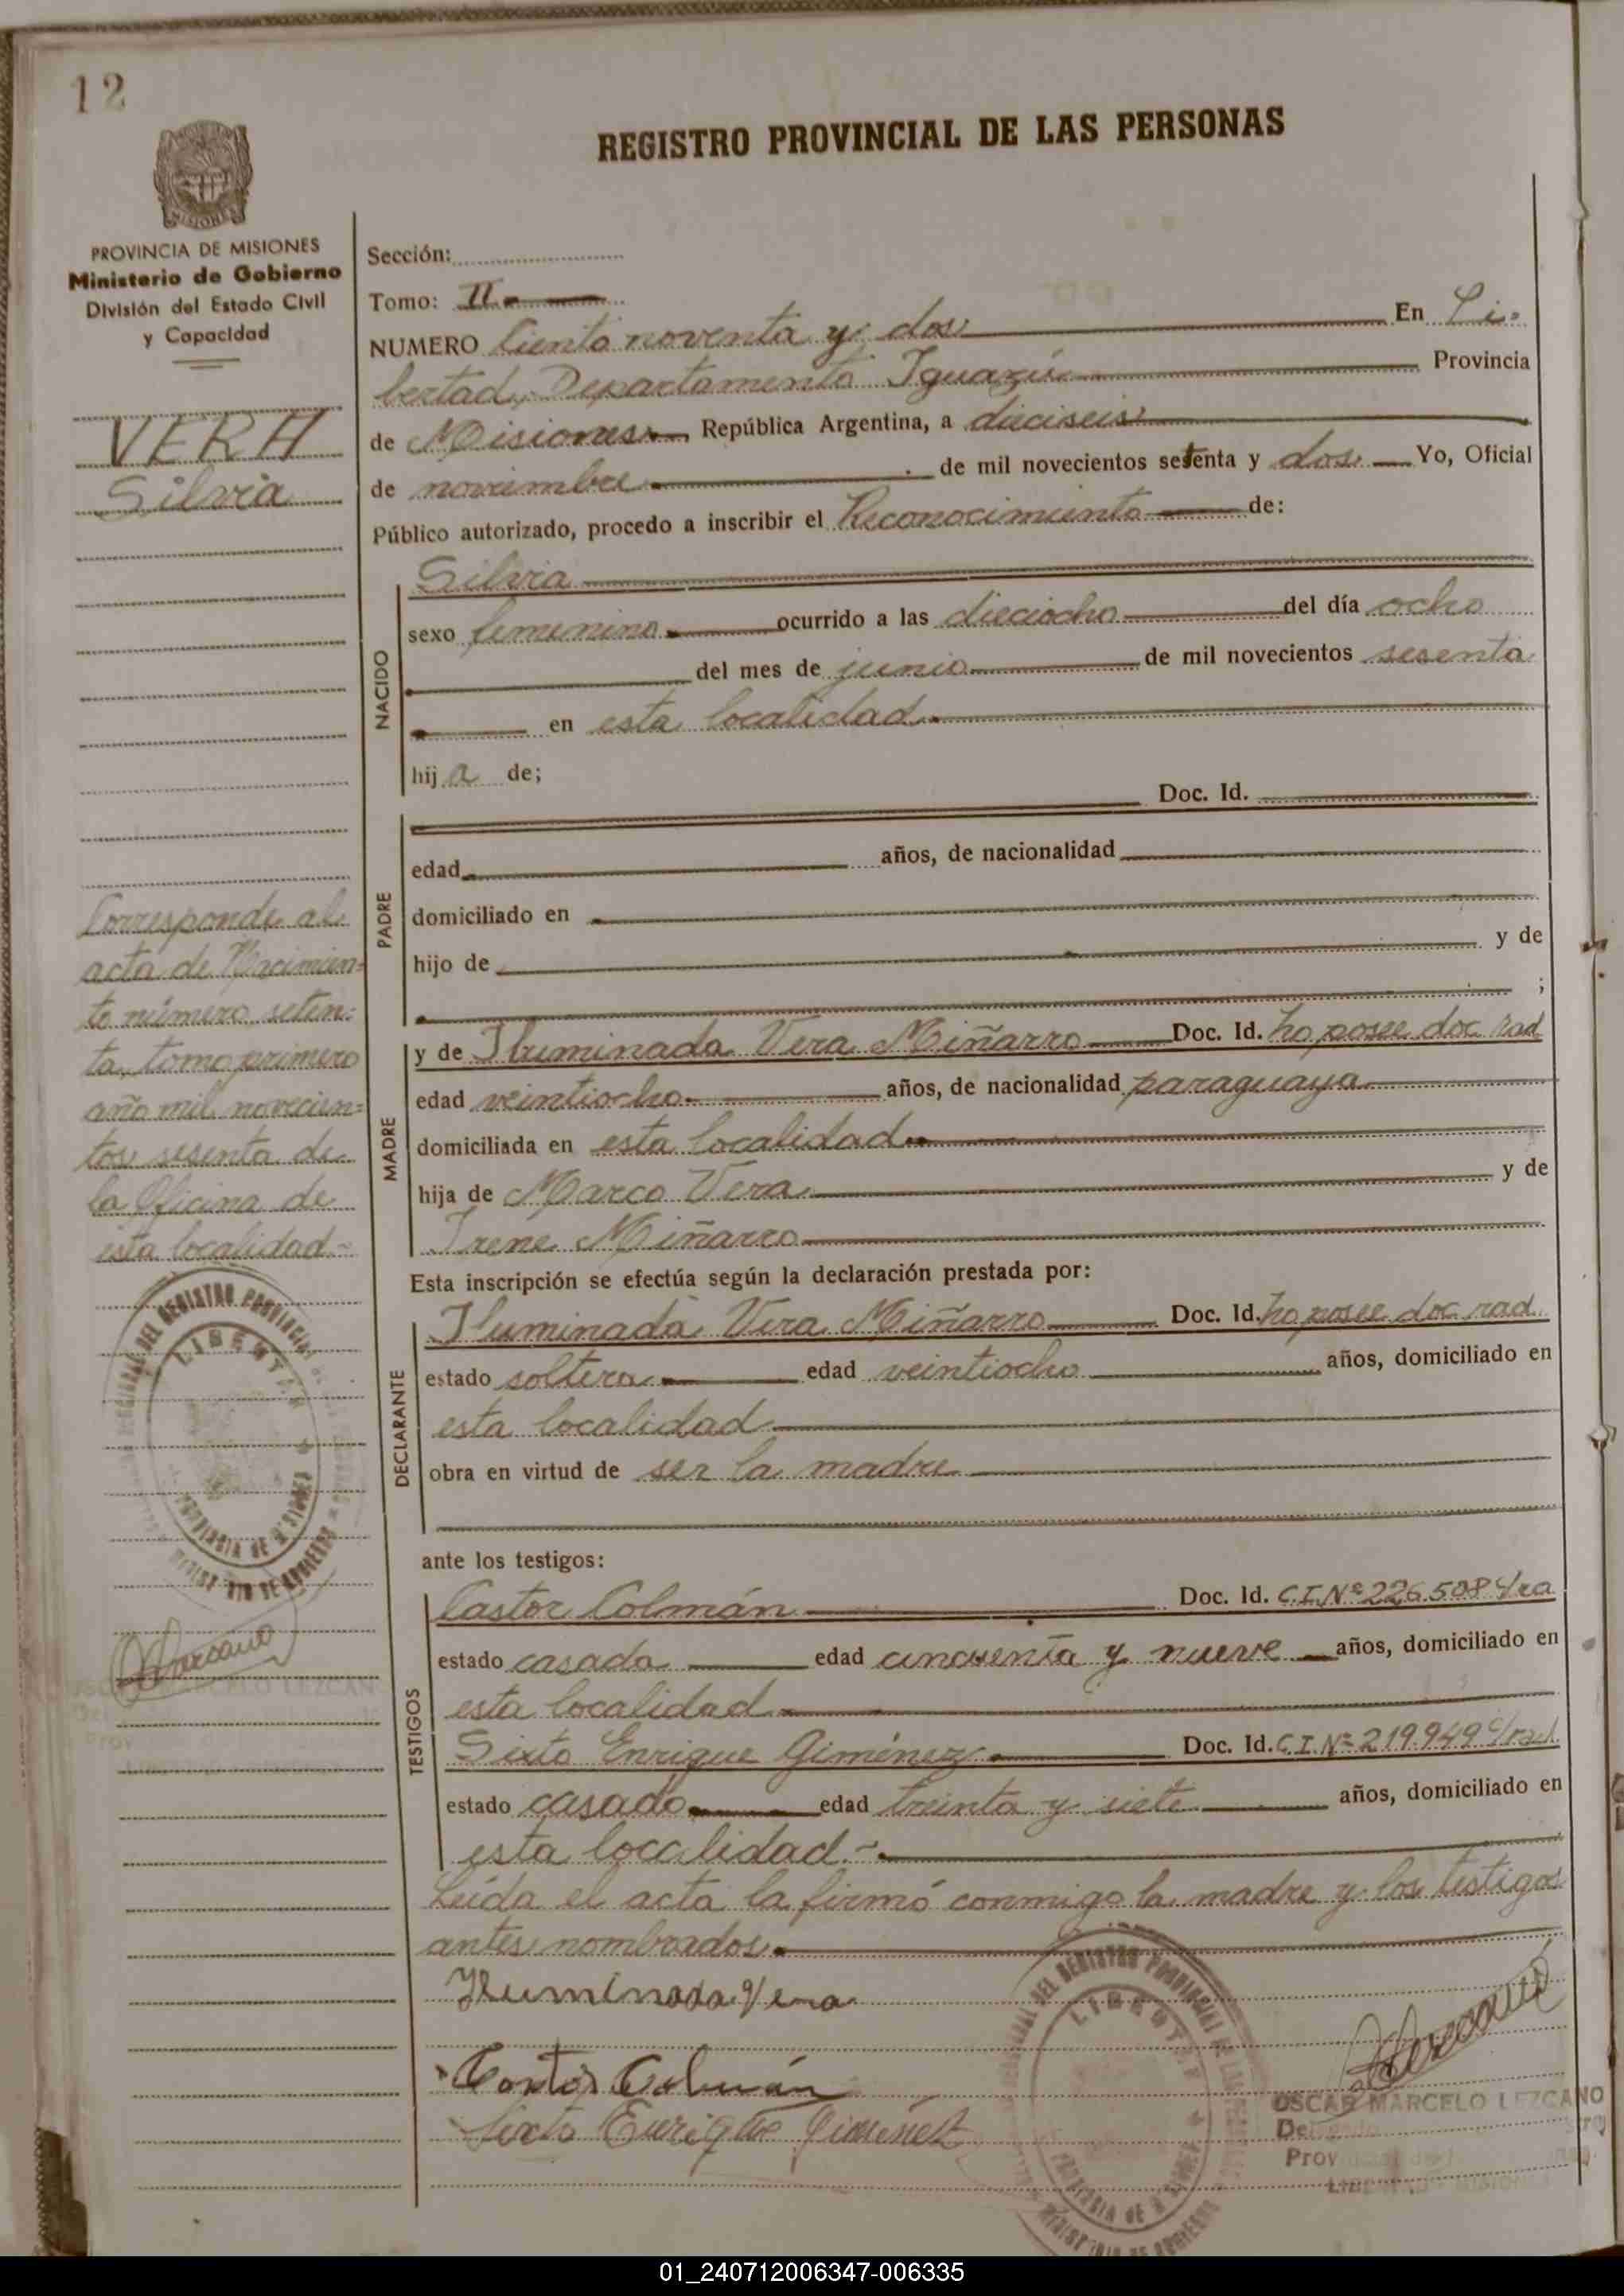 12
REGISTRO PROVINCIAL DE LAS PERSONAS
MISIONES
PROVINCIA DE MISIONES
Ministerio de Gobierno
División del Estado Civil
y Capacidad
VERA
Silvia
Corresponde al
acta de Nacimien=
to número seten=
ta, tomo primero
año mil novecien=
tos sesenta de
la Oficina de
esta localidad
Sección:
Tomo: II
NUMERO Ciento noventa y dos En Li=
bertad, Departamento Iguazú Provincia
de Misiones República Argentina, a dieciseis
de noviembre de mil novecientos setenta y dos Yo, Oficial
Público autorizado, procedo a inscribir el Reconocimiento de:
NACIDO
Silvia
sexo femenino ocurrido a las dieciocho del día ocho
del mes de junio de mil novecientos sesenta
en esta localidad
hij a de;
PADRE
Doc. Id.
edad años, de nacionalidad
domiciliado en
hijo de y de
;
MADRE
y de Iluminada Vera Miñarro Doc. Id. no posee doc rad
edad veintiocho años, de nacionalidad paraguaya
domiciliada en esta localidad
hija de Marco Vera y de
Irene Miñarro
Esta inscripción se efectúa según la declaración prestada por:
DECLARANTE
Iluminada Vera Miñarro Doc. Id. no posee doc rad
estado soltera edad veintiocho años, domiciliado en
esta localidad
obra en virtud de ser la madre
ante los testigos:
TESTIGOS
Castor Colmán Doc. Id. C.I.Nº 226.508
estado casado edad cincuenta y nueve años, domiciliado en
esta localidad
Sixto Enrique Giménez Doc. Id. C.I.Nº 219.949
estado casado edad treinta y siete años, domiciliado en
esta localidad
Leída el acta la firmó conmigo la madre y los testigos
antes nombrados
Iluminada Vera
Castor Colmán
Sixto Enrique Giménez
OSCAR MARCELO LEZCANO
01_240712006347-006335